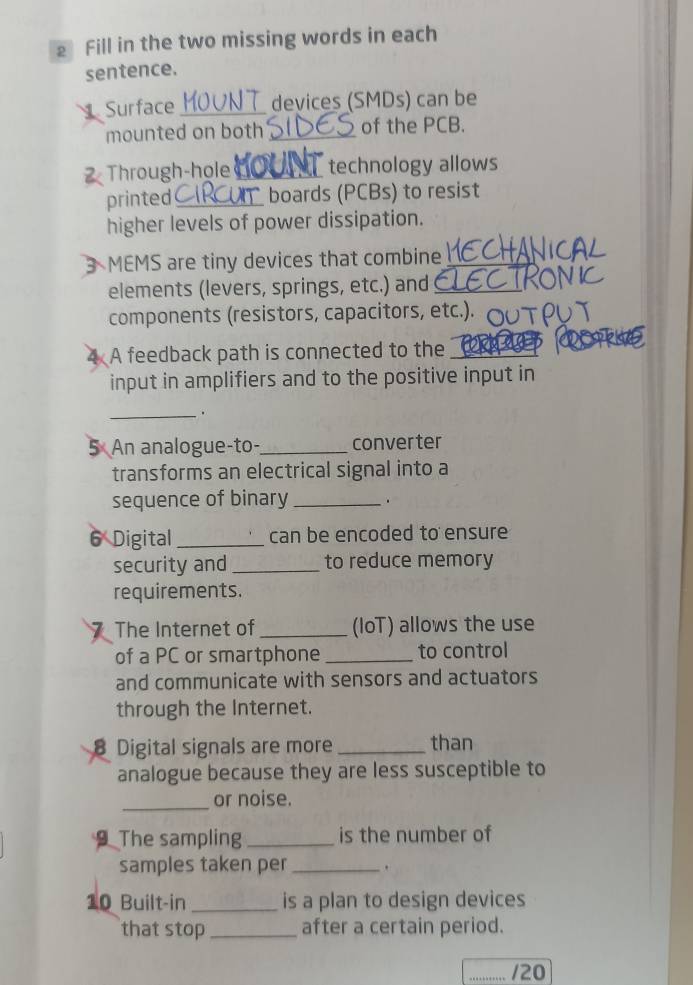 2 Fill in the two missing words in each
sentence.
1 Surface MOUNT devices (SMDs) can be
mounted on both SIDES of the PCB.
2 Through-hole MOUNT technology allows
printed CIRCUIT boards (PCBs) to resist
higher levels of power dissipation.
3 MEMS are tiny devices that combine MECHANICAL
elements (levers, springs, etc.) and ELECTRONIC
components (resistors, capacitors, etc.). OUTPUT
4 A feedback path is connected to the ________
input in amplifiers and to the positive input in
________.
5 An analogue-to-________ converter
transforms an electrical signal into a
sequence of binary ________.
6 Digital ________ can be encoded to ensure
security and ________ to reduce memory
requirements.
7 The Internet of ________ (IoT) allows the use
of a PC or smartphone ________ to control
and communicate with sensors and actuators
through the Internet.
8 Digital signals are more ________ than
analogue because they are less susceptible to
________ or noise.
9 The sampling ________ is the number of
samples taken per ________.
10 Built-in ________ is a plan to design devices
that stop ________ after a certain period.
........... /20